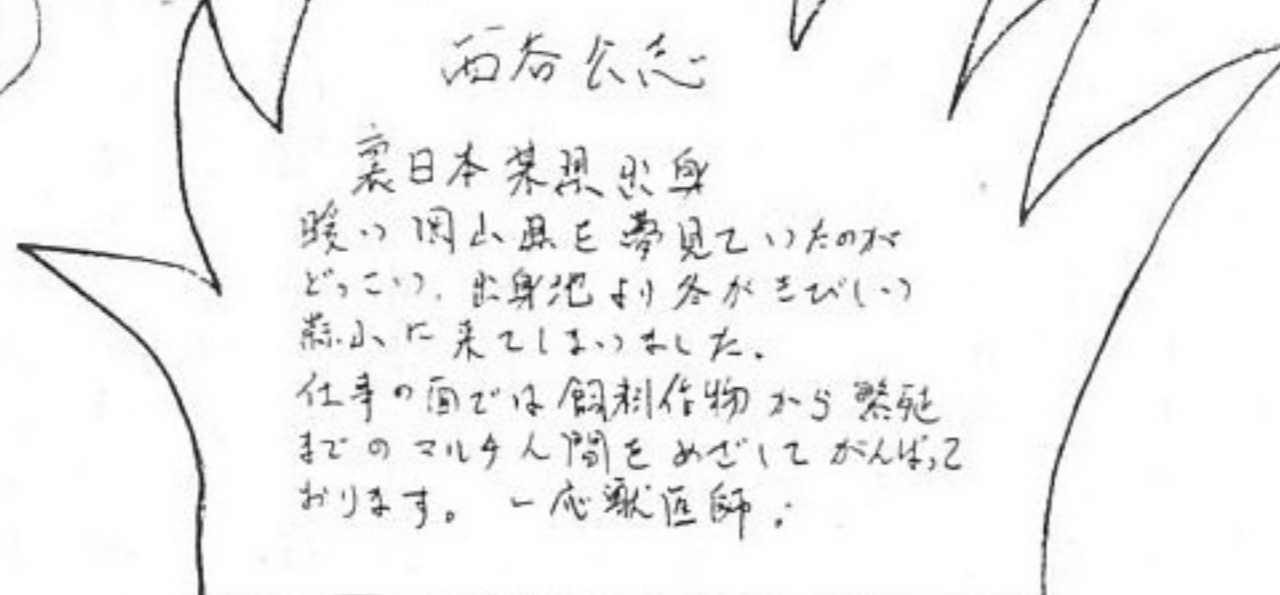 西谷公志
裏日本某県出身
暖い岡山県を夢見ていたのが
どっこい、出身地より冬がきびしい
蒜山に来てしまいました。
仕事の面では飼料作物から繁殖
までのマルチ人間をめざしてがんばって
おります。一応獣医師。